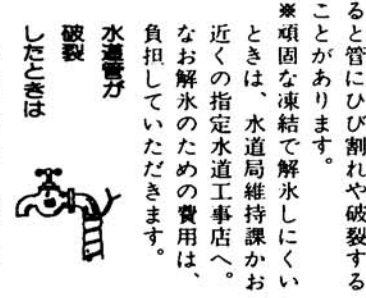 ると管にひび割れや破裂する
ことがあります。
※頑固な凍結で解氷しにくい
ときは、水道局維持課かお
近くの指定水道工事店へ。
なお解氷のための費用は、
負担していただきます。
水道管が
破裂
したときは